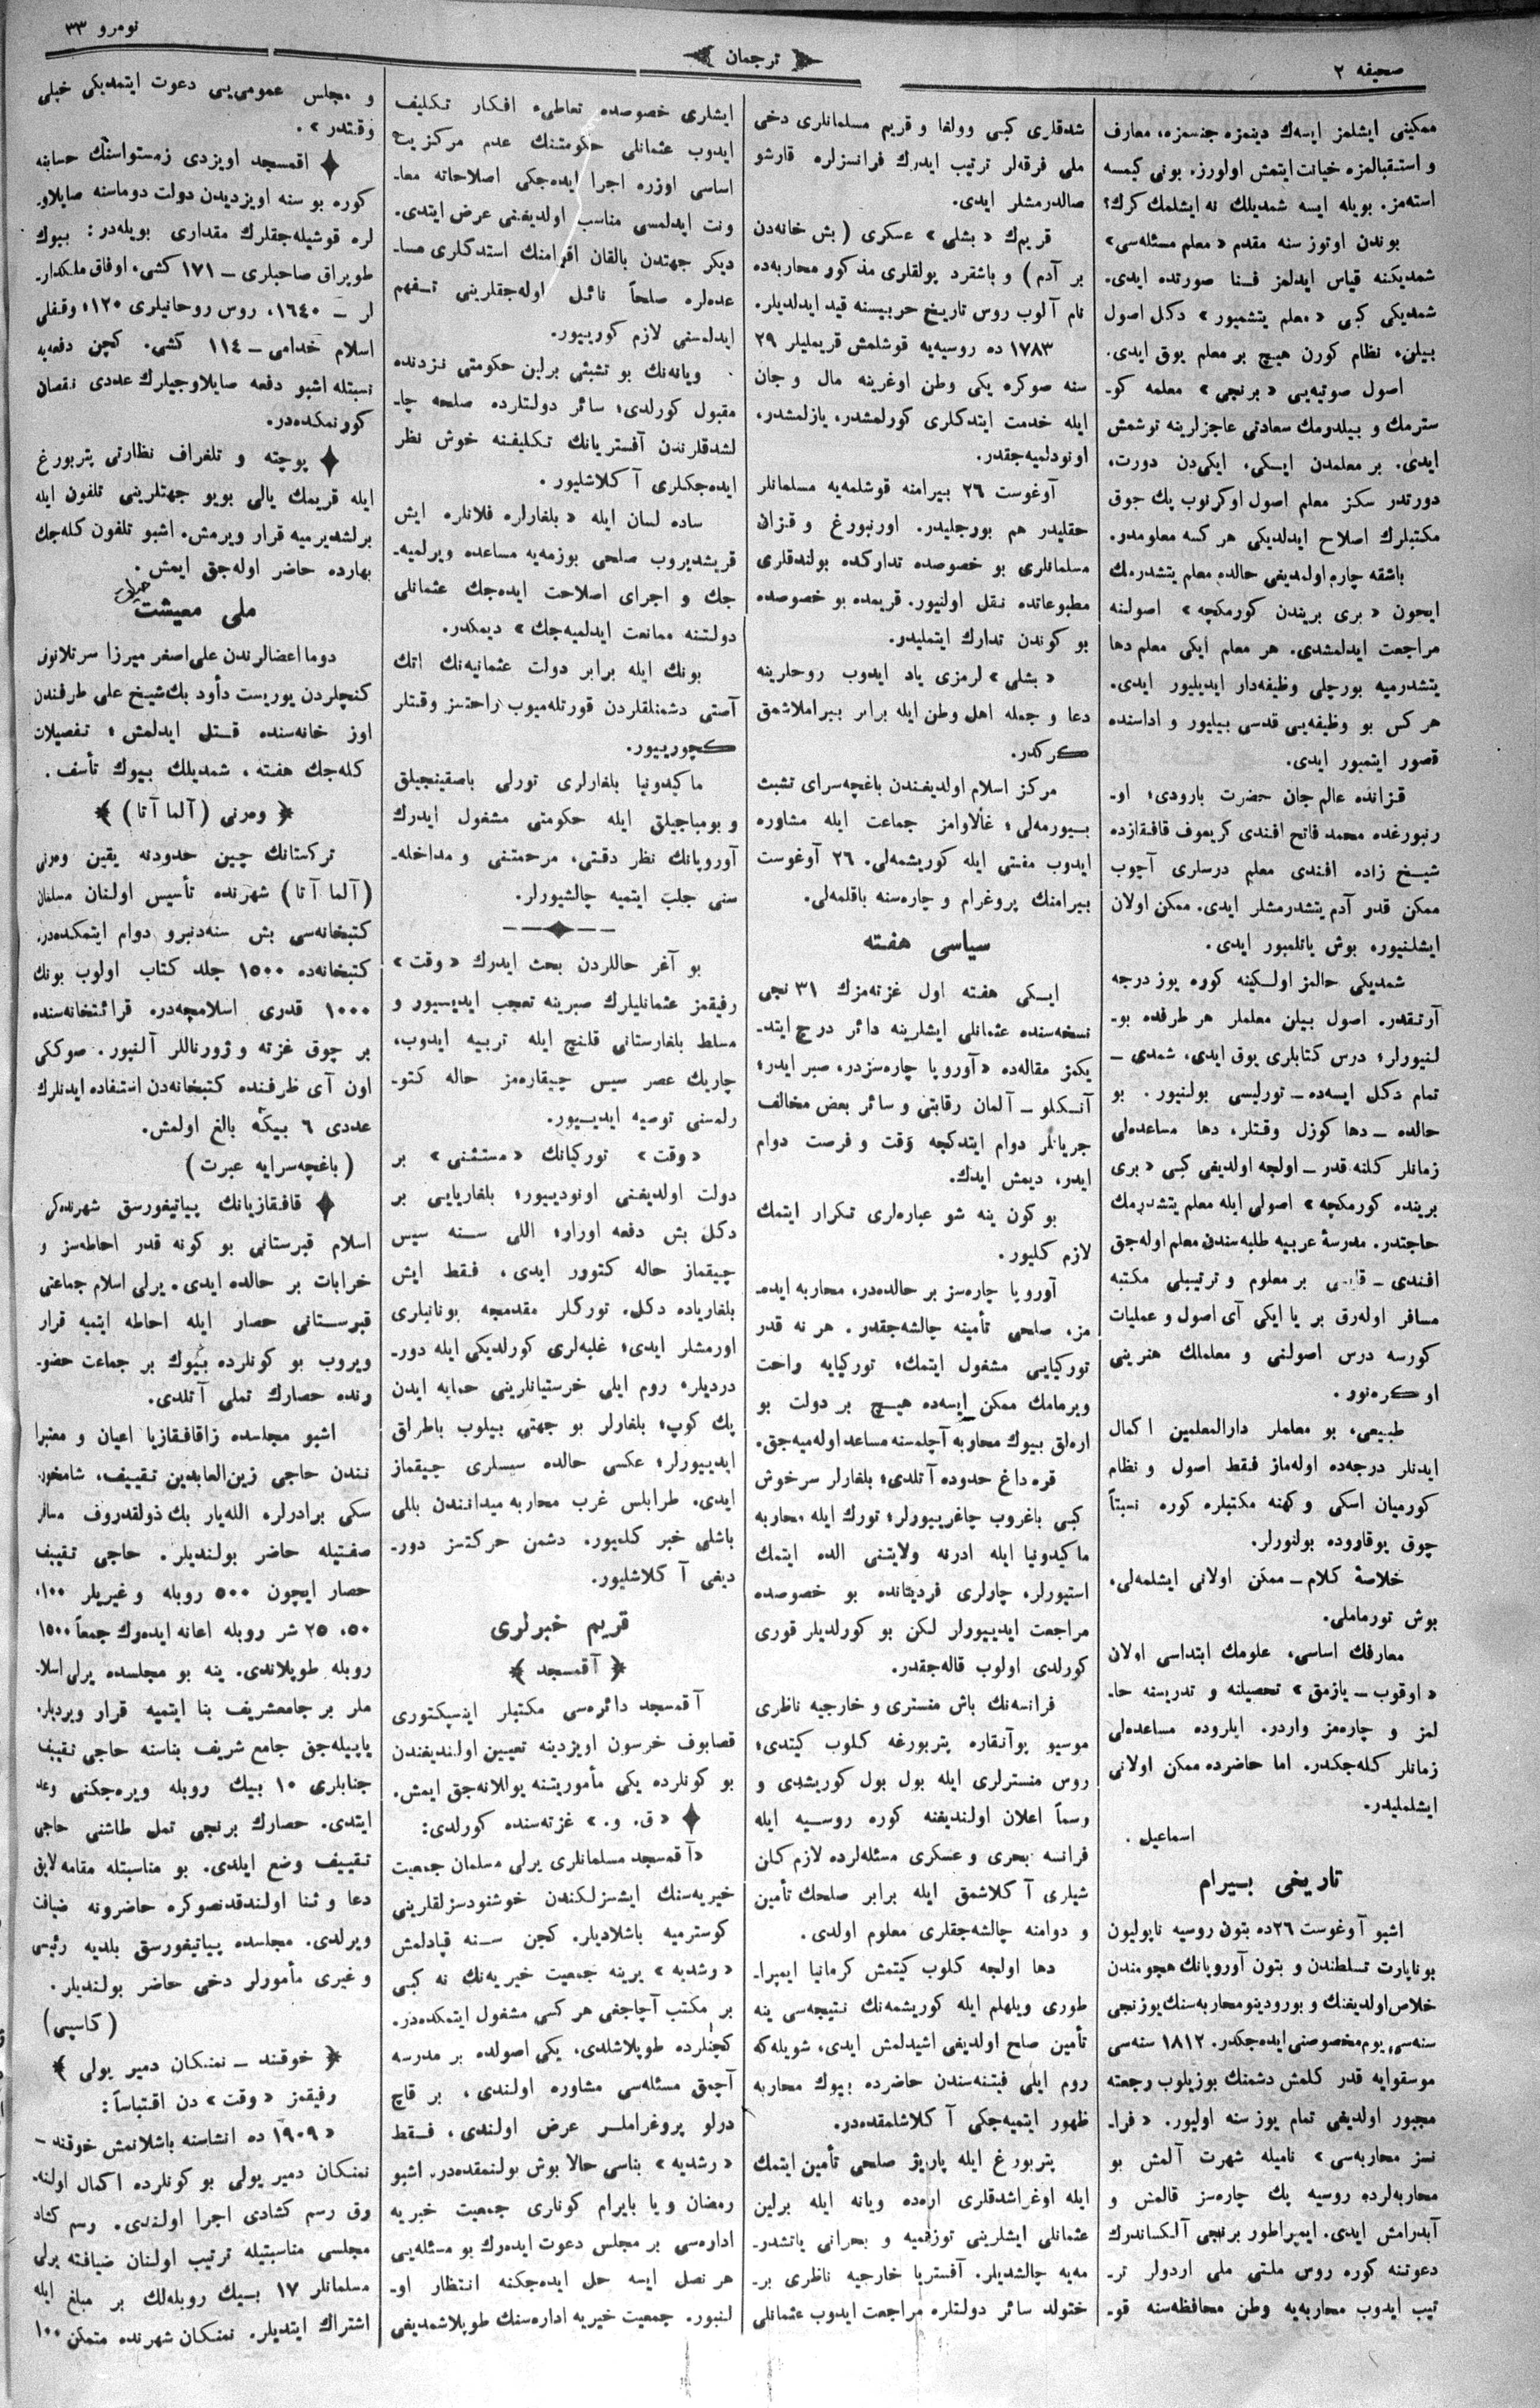 صحیفه ٢
ترجمان
نومرو ٣٣
ممکینی ایشلمز ایسەك دینمزە جنسمزە، معارف
و استقبالمزە خیانت ایتمش اولورز. بونی کیمسه
استەمز. بویله ایسه شمدیلك نه ایشلمك کرك؟
بوندن اوتوز سنه مقدم «معلم مسئلەسی»
شمدیکنه قیاس ایدلمز فـنا صورتدە ایدی.
شمدیکی کبی «معلم یتشمیور» دکل اصول
بیلن، نظام کورن هیچ بر معلم یوق ایدی.
اصول صوتیەیی «برنجی» معلمه کو-
سترمك و بیلدرمك سعادتی عاجزلرینه توشمش
ایدی. بر معلمدن ایـکی، ایکیدن دورت،
دورتدر سکز معلم اصول اوکرنوب پك چوق
مکتبلرك اصلاح ایدلدیکی هر کسه معلومدر.
باشقه چارە اولمدیغی حالدە معلم یتشدرمك
ایچون «بری بریندن کورمکچه» اصولنه
مراجعت ایدلمشدی. هر معلم ایکی معلم دها
یتشدرمیه بورجلی وظیفەدار ایدیلیور ایدی.
هر کس بو وظیفەیی قدسی بیلیور و اداسندە
قصور ایتمیور ایدی.
قـزاندە عالم جان حضرت بارودی، او-
رنبورغدە محمد فاتح افندی کریموف قافـقازدە
شیـخ زادە افندی معلم درسلری آچوب
ممکن قدر آدم یتشدرمشلر ایدی. ممکن اولان
ایشلـنیورە بوش یاتلمیور ایدی.
شمدیکی حالمز اولـکینه کورە یوز درجه
آرتـقدر. اصول بیلن معلملر هر طرفدە بو-
لـنیورلر؛ درس کتابلری یوق ایدی، شمدی ــ
تمام دکل ایسەدە ــ تورلیسی بولـنیور. بو
حالدە ــ دها کوزل وقـتلر، دها مساعدەلی
زمانلر کلنه قدر ــ اولجه اولدیغی کبی «بری
بریندە کورمکچه» اصولی ایله معلم یتشدرمك
حاجتدر. مدرسۀ عربیه طلبەسندن معلم اولەجق
افـندی ــ بر معلوم و ترتیبلی مکتبه
مسافر اولەرق بر یا ایکی آی اصول و عملیات
کورسه درس اصولـنی و معلملك هنرینی
اوکرەنور.
طبیعی، بو معلملر دارالمعلمین اکمال
ایدنلر درجەدە اولەماز فـقط اصول و نظام
کورمیان اسکی و کهنه مکتبلرە کورە نسبتاً
چوق یوقاروده بولنورلر.
خلاصۀ کلام ــ ممکن اولانی ایشلمەلی،
بوش تورماملی.
معارفك اساسی، علومك ابتداسی اولان
«اوقوب ــ یازمق» تحصیلنه و تدریسنه حا-
لمز و چارەمز واردر. ایلرودە مساعدەلی
زمانلر کلەجکدر. اما حاضردە ممکن اولانی
ایشلملیدر.
اسماعیل.
تاریخی بـیرام
اشبو آوغوست ٢٦دە بتون روسیه ناپولیون
بوناپارت تسلطندن و بتون آوروپانك هجومندن
خلاص اولدیغنك و بورودینو محاربەسنك یوزنجی
سنەسی، یوم مخصوصنی ایدەجکدر. ١٨١٢ سنەسی
موسقوایه قدر کلمش دشمنك بوزیلوب رجعته
مجبور اولدیغی تمام یوز سنه اولیور. «فرا-
نسز محاربەسی» نامیله شهرت آلمش بو
محاربەلردە روسیه پك چارەسز قالمش و
آبدرامش ایدی. ایمپراطور برنجی آلکساندرك
دعوتنه کورە روس ملتی ملی اردولر تر-
تیب ایدوب محاربەیه وطن محافظەسنه قو-
شدقلری کبی وولغا و قریم مسلمانلری دخی
ملی فرقەلر ترتیب ایدرك فرانسزلرە قارشو
صالدرمشلر ایدی.
قریمك «بشلی» عسکری (بش خانەدن
بر آدم) و باشقرد یولقلری مذکور محاربەدە
نام آلوب روس تاریخ حربیسنه قید ایدلدیلر.
١٧٨٣ دە روسیەیه قوشلمش قریملیلر ٢٩
سنه صوکرە یکی وطن اوغرینه مال و جان
ایله خدمت ایتدکلری کورلمشدر، یازلمشدر،
اونودلمیەجقدر.
آوغوست ٢٦ بیرامنه قوشلمەیه مسلمانلر
حقلیدر هم بورجلیدر. اورنبورغ و قـزان
مسلمانلری بو خصوصدە تدارکدە بولندقلری
مطبوعاتدە نـقل اولنیور. قریمدە بو خصوصدە
بو کوندن تدارك ایتملیدر.
«بشلی» لرمزی یاد ایدوب روحلرینه
دعا و جمله اهل وطن ایله برابر بـیراملاشمق
کرکدر.
مرکز اسلام اولدیغـندن باغچەسرای تشبث
بـیورمەلی؛ غالاوامز جماعت ایله مشاورە
ایدوب مفتی ایله کوریشمەلی. ٢٦ آوغوست
بیرامنك پروغرام و چارەسنه باقلمەلی.
سیاسی هفـته
ایـکی هفته اول غزتەمزك ٣١ نجی
نسخەسندە عثمانلی ایشلرینه دائر درج ایتد-
یکمز مقالەدە «آوروپا چارەسزدر، صبر ایدر؛
آنـکلو ــ آلمان رقابتی و سائر بعض مخالف
جریانلر دوام ایتدکجه وقت و فرصت دوام
ایدر، دیمش ایدك.
بو کون ینه شو عبارەلری تـکرار ایتمك
لازم کلیور.
آوروپا چارەسز بر حالدەدر، محاربه ایدە-
مز، صلحی تأمینه چالشەجقدر. هر نه قدر
تورکیایی مشغول ایتمك؛ تورکیایه راحت
ویرمامك ممکن ایسەدە هیـچ بر دولت بو
ارەلق بیوك محاربه آچلمسنه مساعد اولەمیەجق.
قرە داغ حدودە آتلدی؛ بلغارلر سرخوش
کبی باغروب چاغریبیورلر؛ تورك ایله محاربه
ماکیدونیا ایله ادرنه ولایتـنی الدە ایتمك
استیورلر، چارلری فردینانده بو خصوصدە
مراجعت ایدیـیورلر لـکن بو کورلدیلر قوری
کورلدی اولوب قالەجقدر.
فرانسەنك باش منستری و خارجیه ناظری
موسیو پوآنقارە پتربورغه کلوب کیتدی؛
روس منسترلری ایله بول بول کوریشدی و
رسماً اعلان اولندیغنه کورە روسـیه ایله
فرانسه بحری و عسکری مسئلەلردە لازم کلن
شیلری آ کلاشمق ایله برابر صلحك تأمین
و دوامنه چالشەجقلری معلوم اولدی.
دها اولجه کلوب کیتمش کرمانیا ایمپرا-
طوری ویلهلم ایله کوریشمەنك نتیجەسی ینه
تأمین صلح اولدیغی اشیدلمش ایدی، شویلەکه
روم ایلی فتنەسندن حاضردە بیوك محاربه
ظهور ایتمیەجکی آ کلاشلمقدەدر.
پتربورغ ایله پاریژ صلحی تأمین ایتمك
ایله اوغراشدقلری ارەدە ویانه ایله برلین
عثمانلی ایشلرینی توزەتمیه و بحرانی یاتشدر-
مەیه چالشدیلر. آفستریا خارجیه ناظری بر-
ختولد سائر دولتلرە مراجعت ایدوب عثمانلی
ایشلری خصوصدە تعاطیء افـکار تـکلیف
ایدوب عثمانلی حکومتنك عدم مرکزیت
اساسی اوزرە اجرا ایدەجکی اصلاحاته معا-
ونت ایدلمسی مناسب اولدیغـنی عرض ایتدی.
دیکر جهتدن بالقان اقوامنك استدکلری مسا-
عدەلرە صلحاً نائـل اولەجقلرینی تـفهم
ایدلمسنی لازم کوریبور.
ویانەنك بو تشبثی برلین حکومتی نزدندە
مقبول کورلدی؛ سائر دولتلردە صلحه چا-
لشدقلرندن آفستریانك تـکلیفـنه خوش نظر
ایدەجکلری آ کلاشلیور.
سادە لسان ایله «بلغارلرە فلانلرە ایش
قریشدیروب صلحی بوزمەیه مساعدە ویرلمیە-
جك و اجرای اصلاحت ایدەجك عثمانلی
دولـتنه ممانعت ایدلمیەجك» دیمکدر.
بونك ایله برابر دولت عثمانیەنك اتك
آستی دشمنلقلردن قورتلەمیوب راحتسز وقـتلر
کچوریبور.
ماکیدونیا بلغارلری تورلی باصقینجیلق
و بومباجیلق ایله حکومتی مشغول ایدرك
آوروپانك نظر دقتی، مرحمتـنی و مداخلە-
سنی جلب ایتمیه چالشیورلر.
بو آغر حاللردن بحث ایدرك «وقت»
رفیقمز عثمانلیلرك صبرینه تعجب ایدیـیور و
مسلط بلغارستانی قلـنچ ایله تربیه ایدوب،
چاریك عصر سیس چیقارەمز حاله کتو-
رلمسنی توصیه ایدیـیور.
«وقت» تورکیانك «مستثـنی» بر
دولت اولدیغـنی اونودییور؛ بلغاریایی بر
دکل بش دفعه اورار؛ اللی سـنه سیس
چیقماز حاله کتوور ایدی، فـقط ایش
بلغاریادە دکل. تورکلر مقدمجه یونانیلری
اورمشلر ایدی؛ غلبەلری کورلدیکی ایله دور-
دردیلرە روم ایلی خرستیانلرینی حمایه ایدن
پك کوپ؛ بلغارلر بو جهتی بیلوب باطراق
ایدیـیورلر؛ عکسی حالدە سیسلری چیقماز
ایدی. طرابلس غرب محاربه میدانـندن بللی
باشلی خبر کلمیور. دشمن حرکتسز دور-
دیغی آ کلاشلیور.
قریم خبرلری
﴿ آقمسجد ﴾
آقمسجد دائرەسی مکتبلر اینسپکتوری
قصابوف خرسون اویزدینه تعیین اولندیغندن
بو کونلردە یکی مأموریتـنه یوللانەجق ایمش.
«ق. و.» غزتەسندە کورلدی:
«آقمسجد مسلمانلری یرلی مسلمان جمعیت
خیریەسنك ایشسزلـکندن خوشنودسزلقلرینی
کوسترمیه باشلادیلر. کچن سـنه قپادلمش
«رشدیه» یرینه جمعیت خیریەنك نه کبی
بر مکتب آچاجغی هر کسی مشغول ایتمکدەدر.
کچنلردە طوپلاشلدی، یکی اصولدە بر مدرسه
آچمق مسئلەسی مشاورە اولـندی، بر قاچ
درلو پروغراملـر عرض اولندی، فـقط
«رشدیه» بناسی حالا بوش بولـنمقدەدر. اشبو
رمضان و یا بایرام کونلری جمعیت خیریه
ادارەسی بر مجلس دعوت ایدەرك بو مسئلەیی
هر نصل ایسه حل ایدەجکنه انـتظار او-
لنیور. جمعیت خیریه ادارەسنك طوپلاشمدیغی
و مجلس عمومیـیی دعوت ایتمدیکی خیلی
وقـتدر».
اقمسجد اویزدی زمستواسنك حسابنه
کورە بو سنه اویزدیدن دولت دوماسنه صایلاو-
لرە قوشیلەجقلرك مقداری بویلەدر: بیوك
طوپراق صاحبلری ــ ١٧١ کشی، اوفاق ملکدار-
لر ــ ١٦٤٠، روس روحانیلری ١٢٠، وقـفلی
اسلام خدامی ــ ١١٤ کشی. کچن دفعەیه
نسبتله اشبو دفعه صایلاوجیلرك عددی نقصان
کورنمکدەدر.
پوچته و تلغراف نظارتی پتربورغ
ایله قریمك یالی بویو جهتلرینی تلفون ایله
برلشدیرمیه قرار ویرمش، اشبو تلفون کلەجك
بهاردە حاضر اولەجق ایمش.
ملی معیشت
دوما اعضالرندن علی اصغر میرزا سرتلانوف
کنچلردن یوریست دأود بك شیخ علی طرفندن
اوز خانەسندە قـتل ایدلمش؛ تـفصیلات
کلەجك هفـته، شمدیلك بیوك تأسف.
﴿ ویرنی (آلما آتا) ﴾
ترکستانك چین حدودنه یقین ویرنی
(آلما آتا) شهرندە تأسیس اولـنان مسلمان
کتبخانەسی بش سنەدنبرو دوام ایتمکدەدر.
کتبخانەدە ١٥٠٠ جلد کتاب اولوب بونك
١٠٠٠ قدری اسلامجەدر. قرائـتخانەسندە
بر چوق غزته و ژورناللر آلـنیور. صوککی
اون آی ظرفـندە کتبخانەدن استفادە ایدنلرك
عددی ٦ بیکه بالغ اولمش.
(باغچەسرایه عبرت)
قافـقازیانك پیاتیغورسق شهرندەکی
اسلام قبرستانی بو کونه قدر احاطەسز و
خرابات بر حالدە ایدی. یرلی اسلام جماعتی
قبرسـتانی حصار ایله احاطه ایتمیه قرار
ویروب بو کونلردە بیوك بر جماعت حضو-
رندە حصارك تملی آتلدی.
اشبو مجلسدە زاقافـقازیا اعیان و معتبرا-
نـندن حاجی زین العابدین تـقییف، شامخور-
سکی برادرلرە الله یار بك ذولقدروف مسافر
صفـتیله حاضر بولـندیلر. حاجی تـقییف
حصار ایچون ٥٠٠ روبله و غیریلر ١٠٠،
٥٠، ٢٥ شر روبله اعانه ایدەرك جمعاً ١٥٠٠
روبله طوپلاندی. ینه بو مجلسدە یرلی اسلا-
ملر بر جامعشریف بنا ایتمیه قرار ویردیلر.
یاپیلەجق جامع شریف بناسنه حاجی تـقییف
جنابلری ١٠ بیك روبله ویرەجکنی وعد
ایتدی. حصارك برنجی تمل طاشنی حاجی
تـقییف وضع ایلدی. بو مناسبتله مقامه لایق
دعا و ثنا اولـندقدنصوکرە حاضرونه ضیافت
ویرلدی. مجلسدە پیاتیغورسق بلدیه رئیسی
و غیری مأمورلر دخی حاضر بولـندیلر.
(کاسپی)
﴿ خوقـند ــ نمنـکان دمیر یولی ﴾
رفیقمز «وقت» دن اقـتباساً:
«١٩٠٩ دە انشاسنه باشلانمش خوقـند ــ
نمنـکان دمیر یولی بو کونلردە اکمال اولـنە-
رق رسم کشادی اجرا اولـندی. رسم کشاد
مجلسی مناسبتیله ترتیب اولـنان ضیافـته یرلی
مسلمانلر ١٧ بـیك روبلەلك بر مبلغ ایله
اشتراك ایتدیلر. نمنـکان شهرندە متمکن ١٠٠